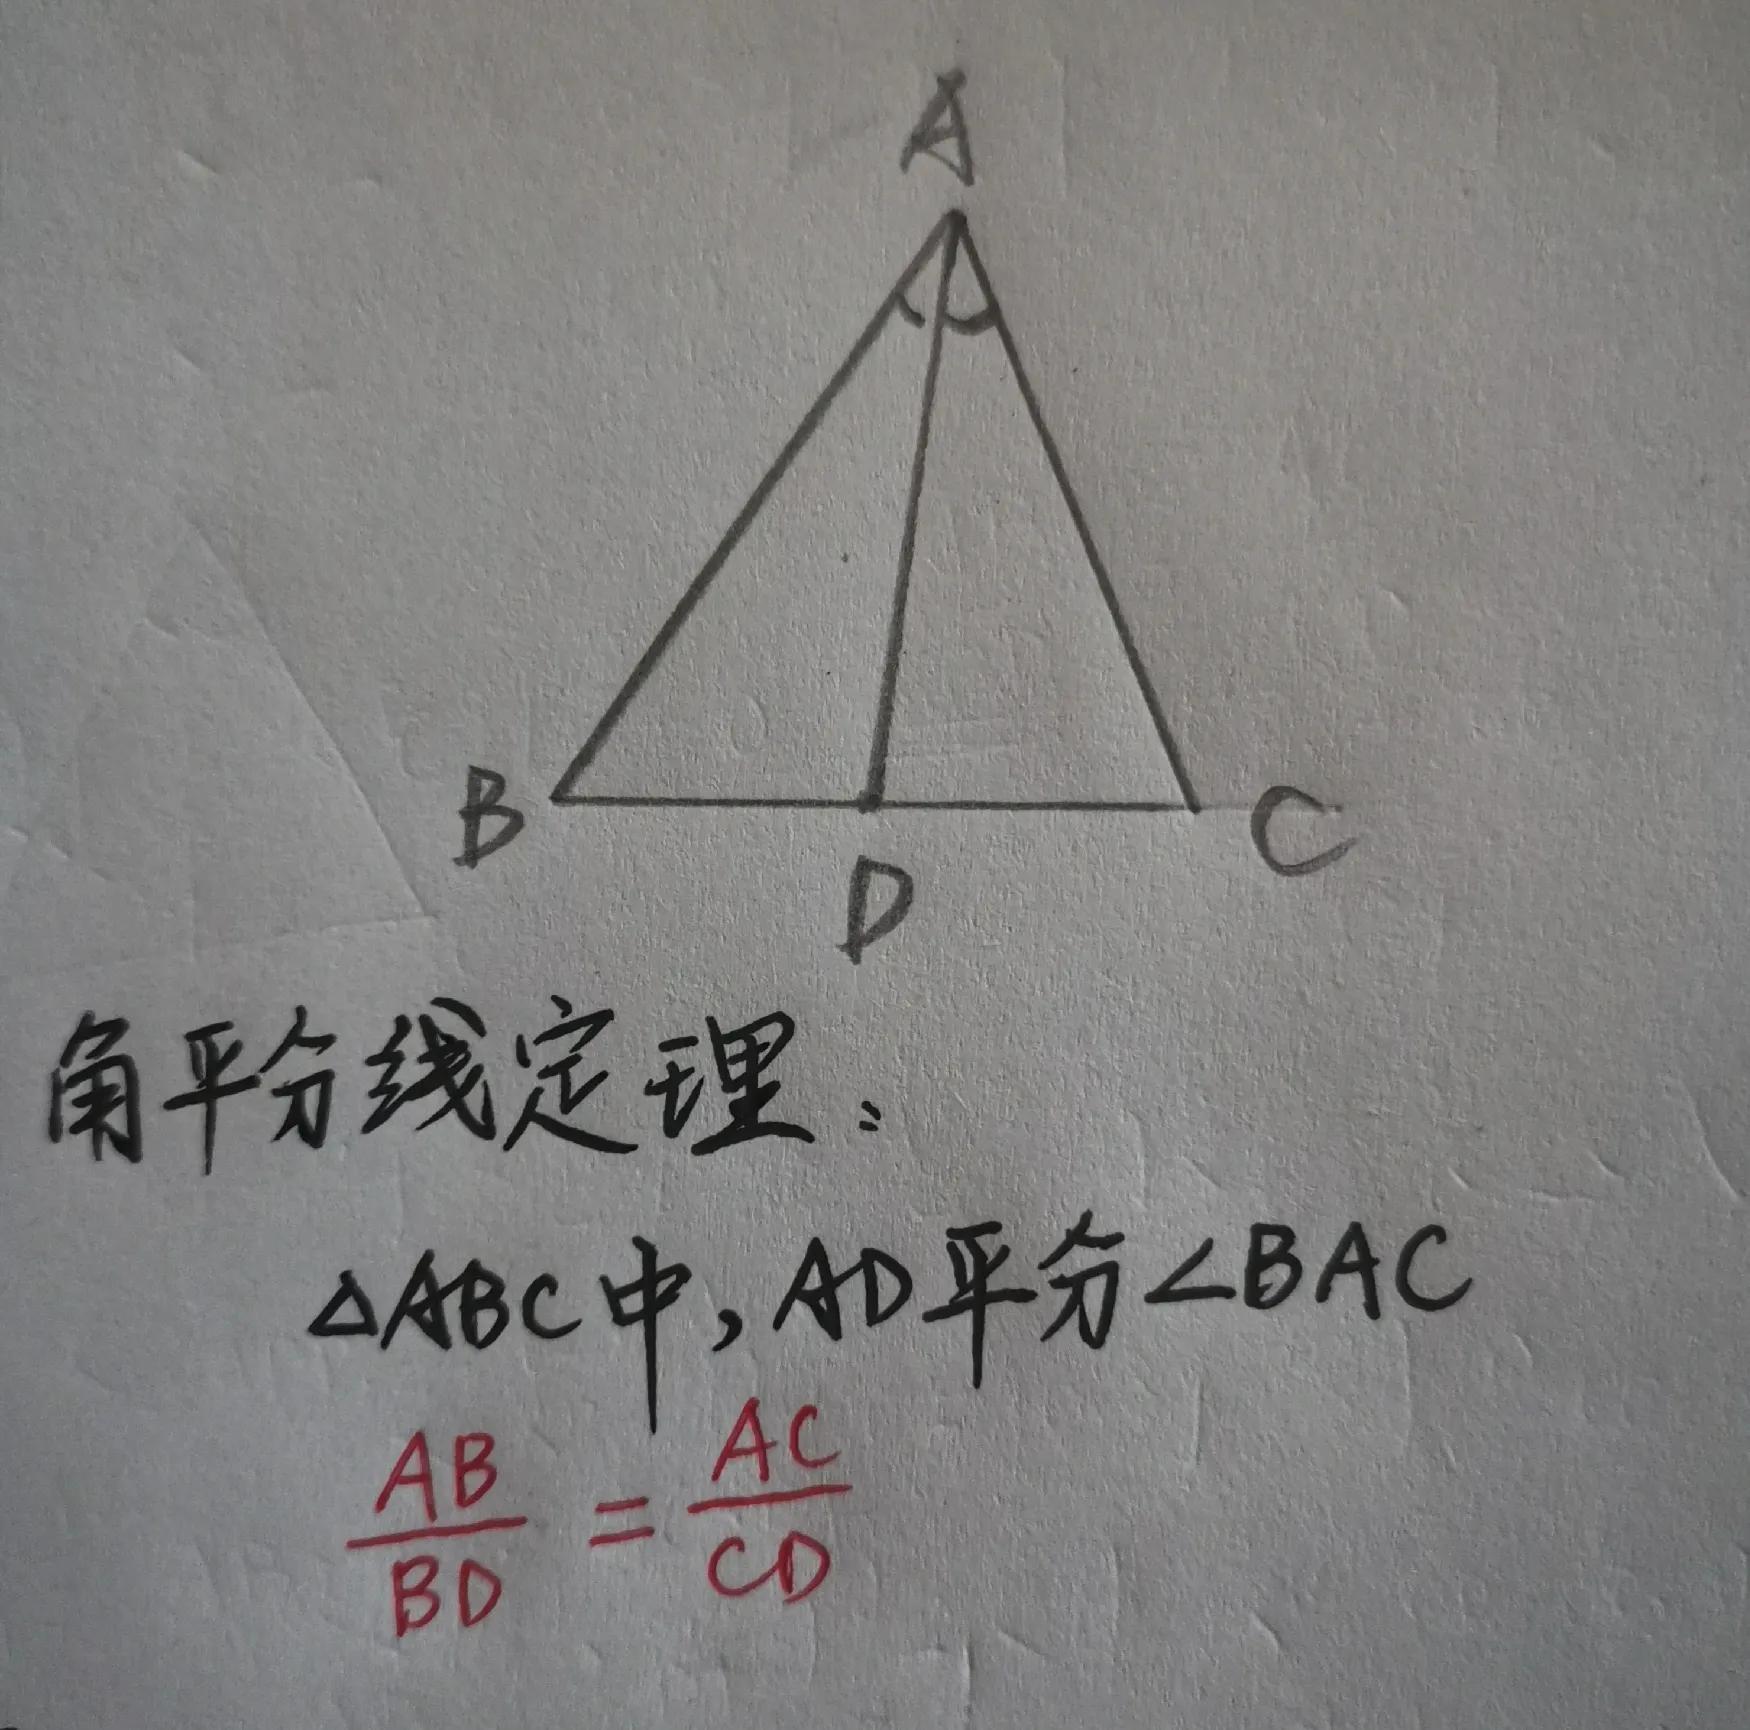 A
B
C
D
角平分线定理：
△ABC中，AD平分∠BAC
AB/BD = AC/CD